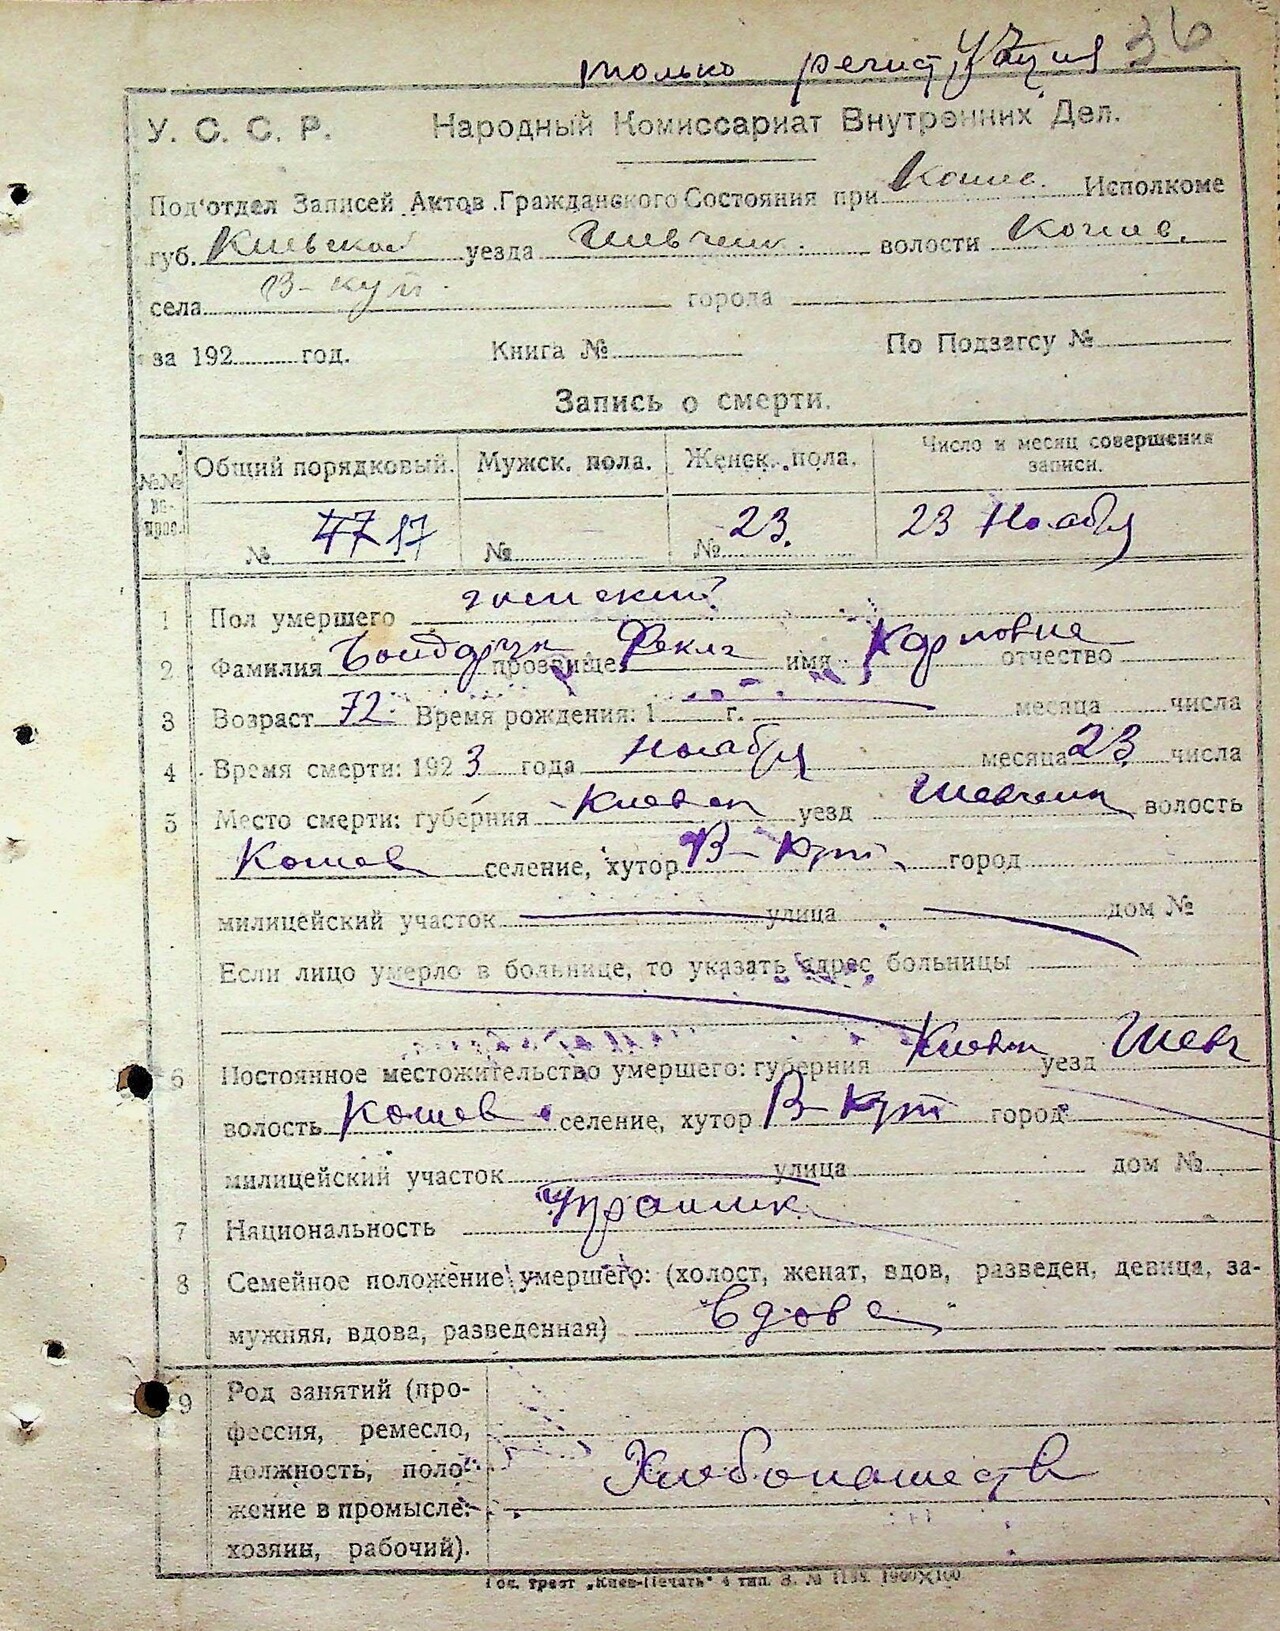 только регистрация 36
У. С. С. Р. Народный Комиссариат Внутренних Дел.
Подотдел Записей Актов Гражданского Состояния при Кошев. Исполкоме
губ. Киевской уезда Шевченк. волости Кошев.
села В-кут. города
за 192 год. Книга № По Подзагсу №
Запись о смерти.
№№ вопрос. Общий порядковый. Мужск. пола. Женск. пола. Число и месяц совершения записи.
№ 47 17 № № 23. 23 Ноября
1 Пол умершего женский
2 Фамилия Бондарук прозвище Фекла имя Карповна отчество
3 Возраст 72. Время рождения: 1 г. месяца числа
4 Время смерти: 1923 года Ноября месяца 23 числа
5 Место смерти: губерния Киевск уезд Шевченк волость
Кошев селение, хутор В-Кут. город
милицейский участок улица дом №
Если лицо умерло в больнице, то указать адрес больницы
6 Постоянное местожительство умершего: губерния Киевск уезд Шевч
волость Кошев селение, хутор В-Кут город
милицейский участок улица дом №
7 Национальность Украинк.
8 Семейное положение умершего: (холост, женат, вдов, разведен, девица, за-
мужняя, вдова, разведенная) Вдова
9 Род занятий (про-
фессия, ремесло,
должность, поло-
жение в промысле:
хозяин, рабочий).
Хлебопашеств
Гос. трест „Киев-Печать“ 4 тип. З. №